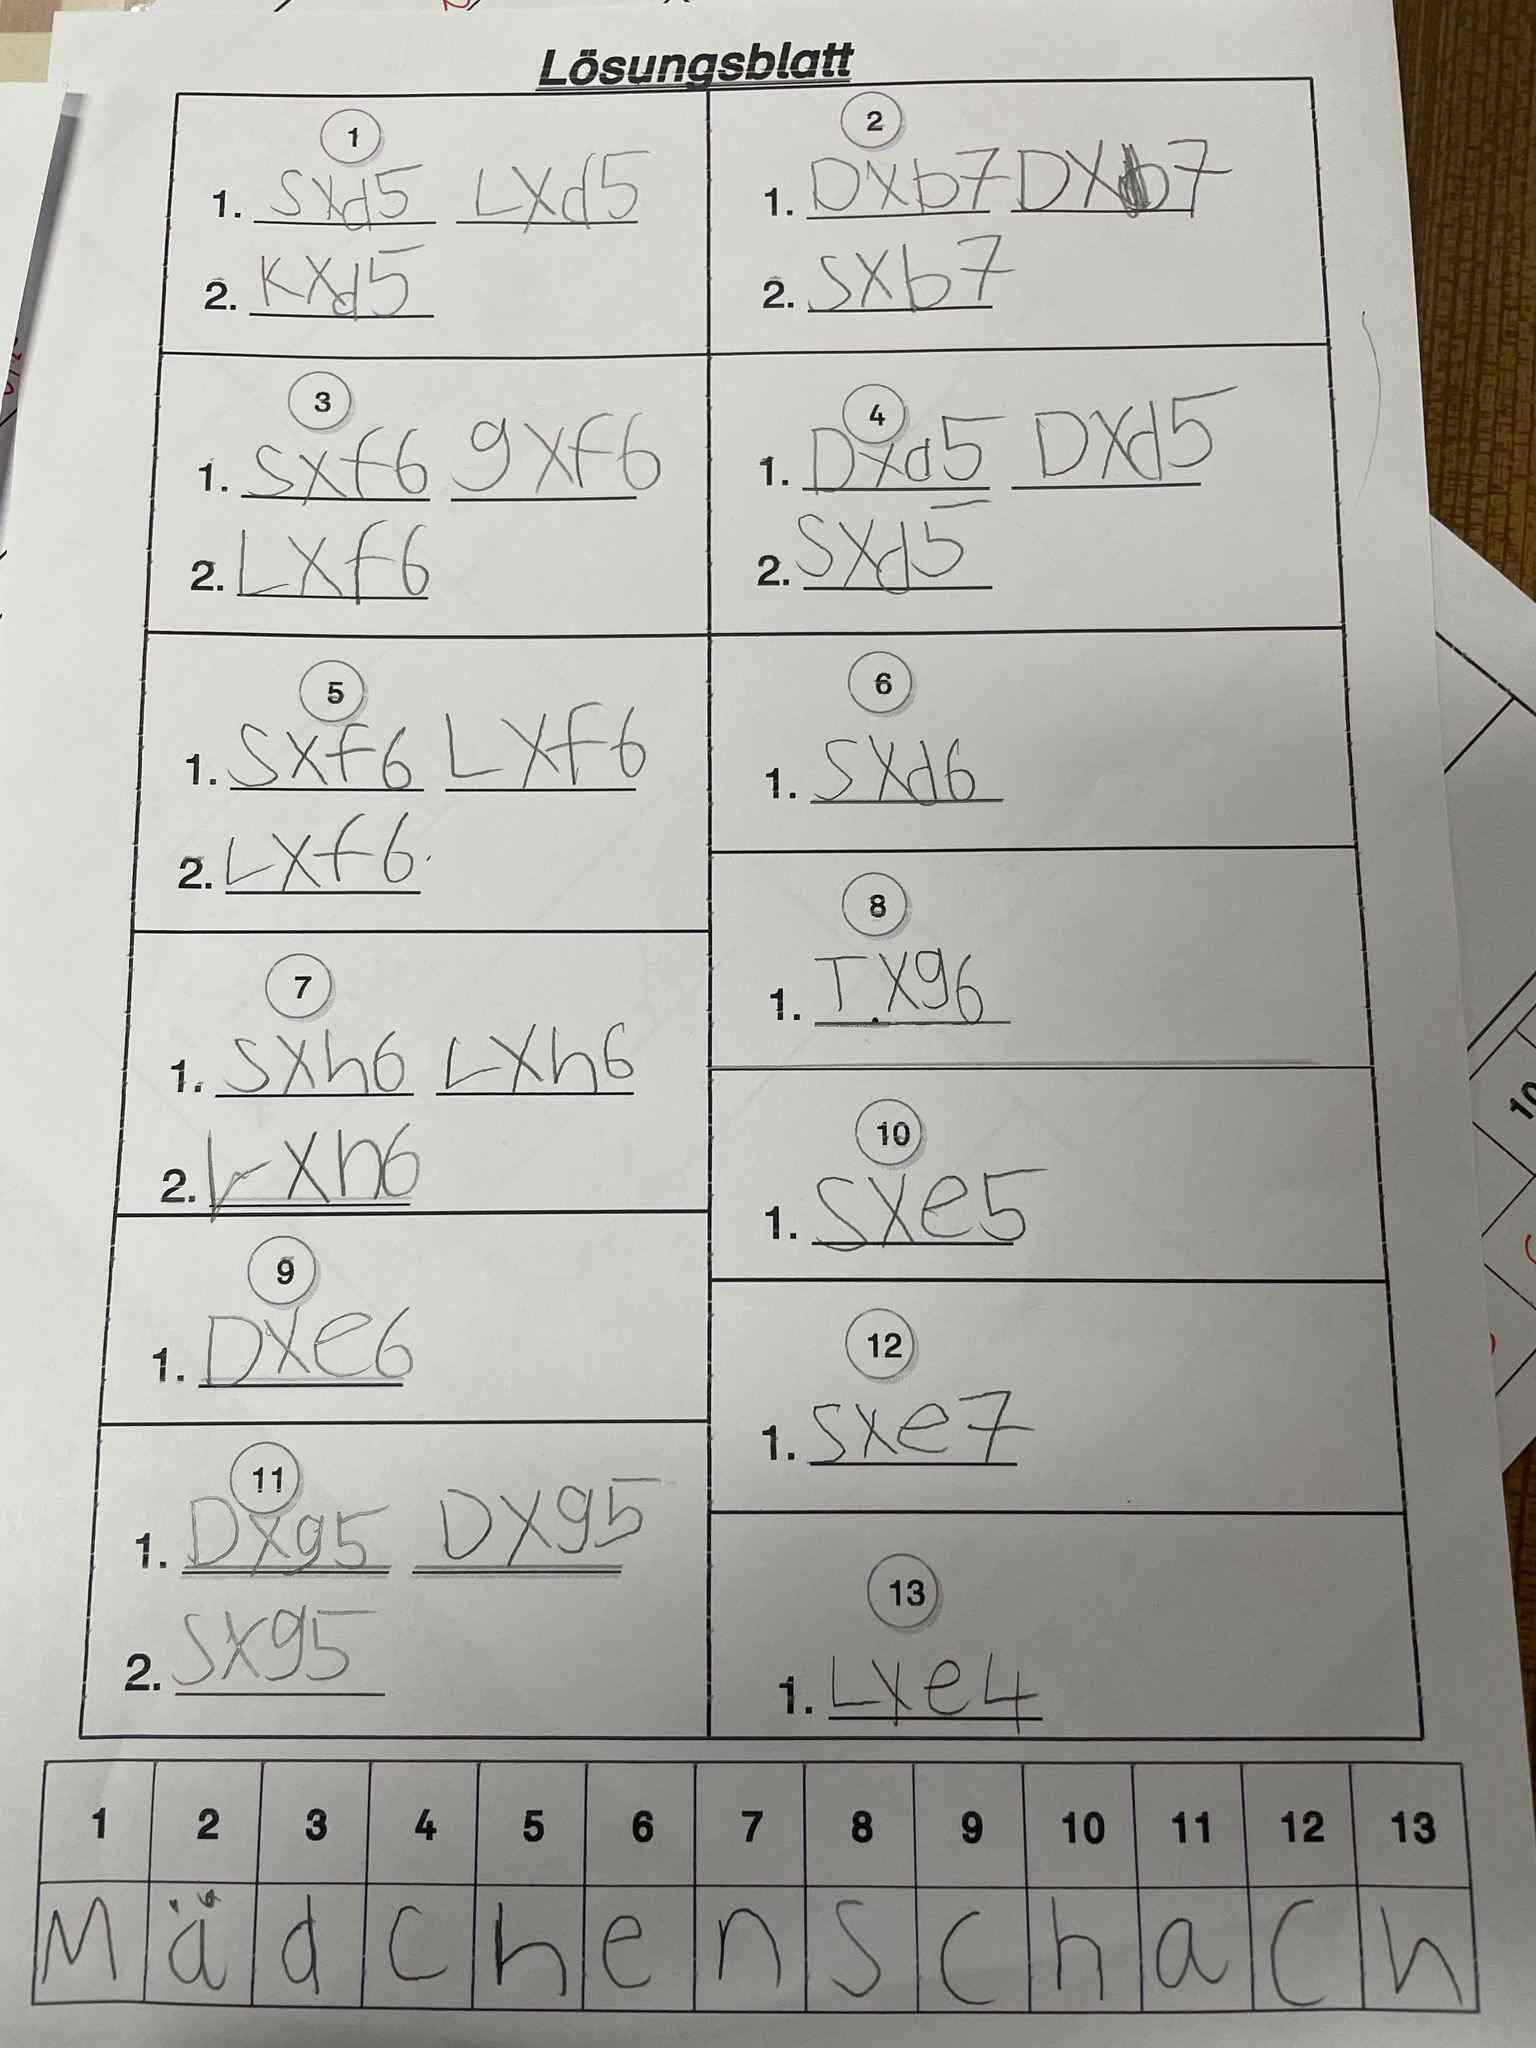 Lösungsblatt
1
1. Sxd5 Lxd5
2. Kxd5
2
1. Dxb7 Dxb7
2. Sxb7
3
1. Sxf6 gxf6
2. Lxf6
4
1. Dxd5 Dxd5
2. Sxd5
5
1. Sxf6 Lxf6
2. Lxf6
6
1. Sxd6
7
1. Sxh6 Lxh6
2. Lxh6
8
1. Txg6
9
1. Dxe6
10
1. Sxe5
11
1. Dxg5 Dxg5
2. Sxg5
12
1. Sxe7
13
1. Lxe4
1 2 3 4 5 6 7 8 9 10 11 12 13
M ä d c h e n s c h a c h
10